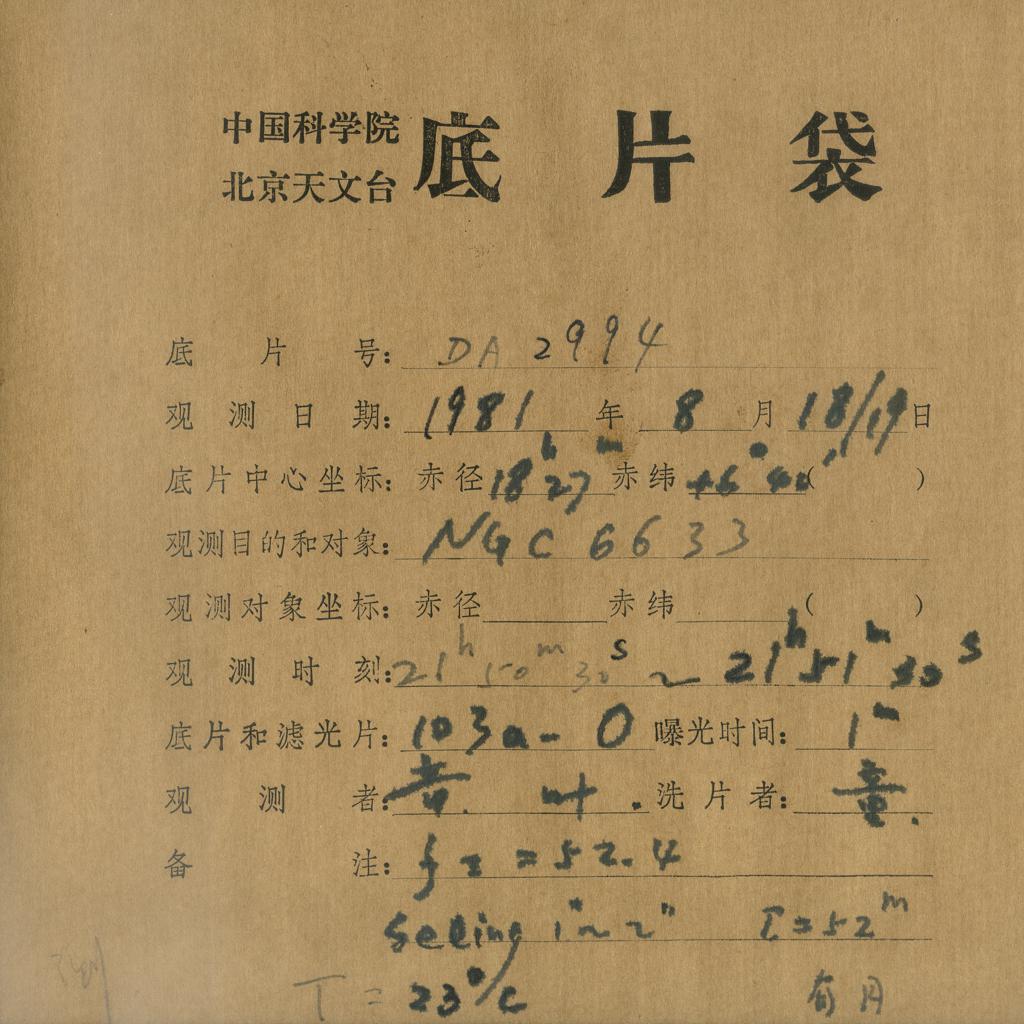 中国科学院
北京天文台
底片袋
底片号: DA 2994
观测日期: 1981年 8月 18/19日
底片中心坐标: 赤径 18h27m 赤纬 +6°40′( )
观测目的和对象: NGC 6633
观测对象坐标: 赤径 赤纬 ( )
观测时刻: 21h50m30s ~ 21h51m30s
底片和滤光片: 103a-O 曝光时间: 1m
观测者: 叶. 洗片者: 童.
备注: fz = 52.4
Seeing 1"~2" I=52m
T = 23°/C 有月